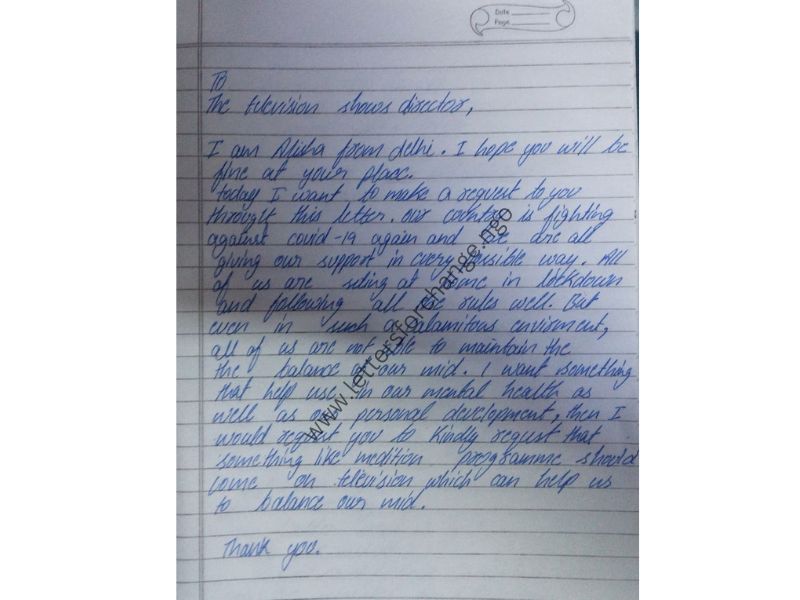 Date
Page
To
The television shows director,
I am Alisha from delhi. I hope you will be
fine at your place.
today I want to make a request to you
throught this letter. our country is fighting
against covid-19 again and we are all
giving our support in every possible way. All
of us are siting at home in lockdown
and following all the rules well. But
even in such a calamitous envirsment,
all of us are not able to maintain the
the balance of our mid. I want something
that help use in our mental health as
well as our personal development, then I
would request you to Kindly request that
something like medition programme should
come on television which can help us
to balance our mid.
Thank you.
www.lettersforchange.ngo